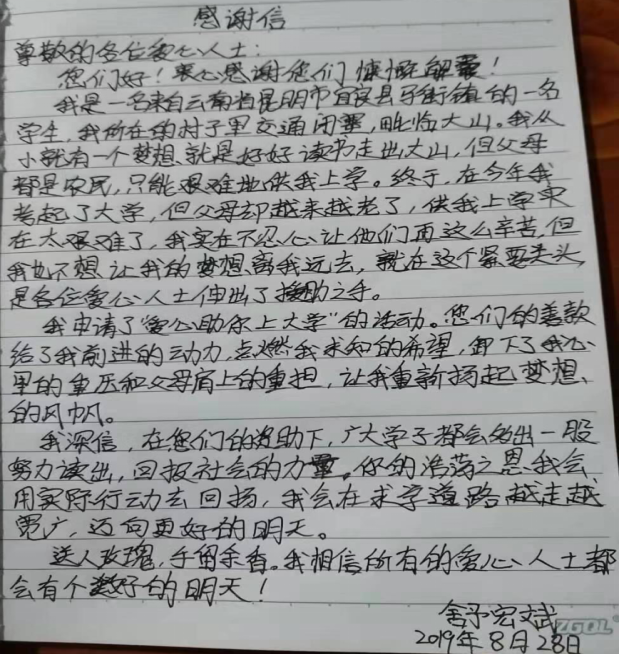 感谢信
尊敬的各位爱心人士：
您们好！衷心感谢您们慷慨解囊！
我是一名来自云南省昆明市宜良县马街镇的一名
学生，我所在的村子里交通闭塞，毗临大山。我从
小就有一个梦想、就是好好读书走出大山，但父母
都是农民，只能艰难地供我上学。终于，在今年我
考起了大学，但父母却越来越老了，供我上学实
在太艰难了，我实在不忍心让他们再这么辛苦，但
我也不想让我的梦想离我远去，就在这个紧要关头，
是各位爱心人士伸出了援助之手。
我申请了“爱心助你上大学”的活动。您们的善款
给了我前进的动力，点燃我求知的希望，卸下了我心
里的重压和父母肩上的重担，让我重新扬起梦想
的风帆。
我深信，在您们的资助下，广大学子都会给出一股
努力读出，回报社会的力量。你的浩荡之恩我会
用实际行动去回扬，我会在求学道路越走越
宽广，迈向更好的明天。
送人玫瑰，手留余香。我相信所有的爱心人士都
会有个美好的明天！
舍予宏斌
ZGOL
2019年8月28日